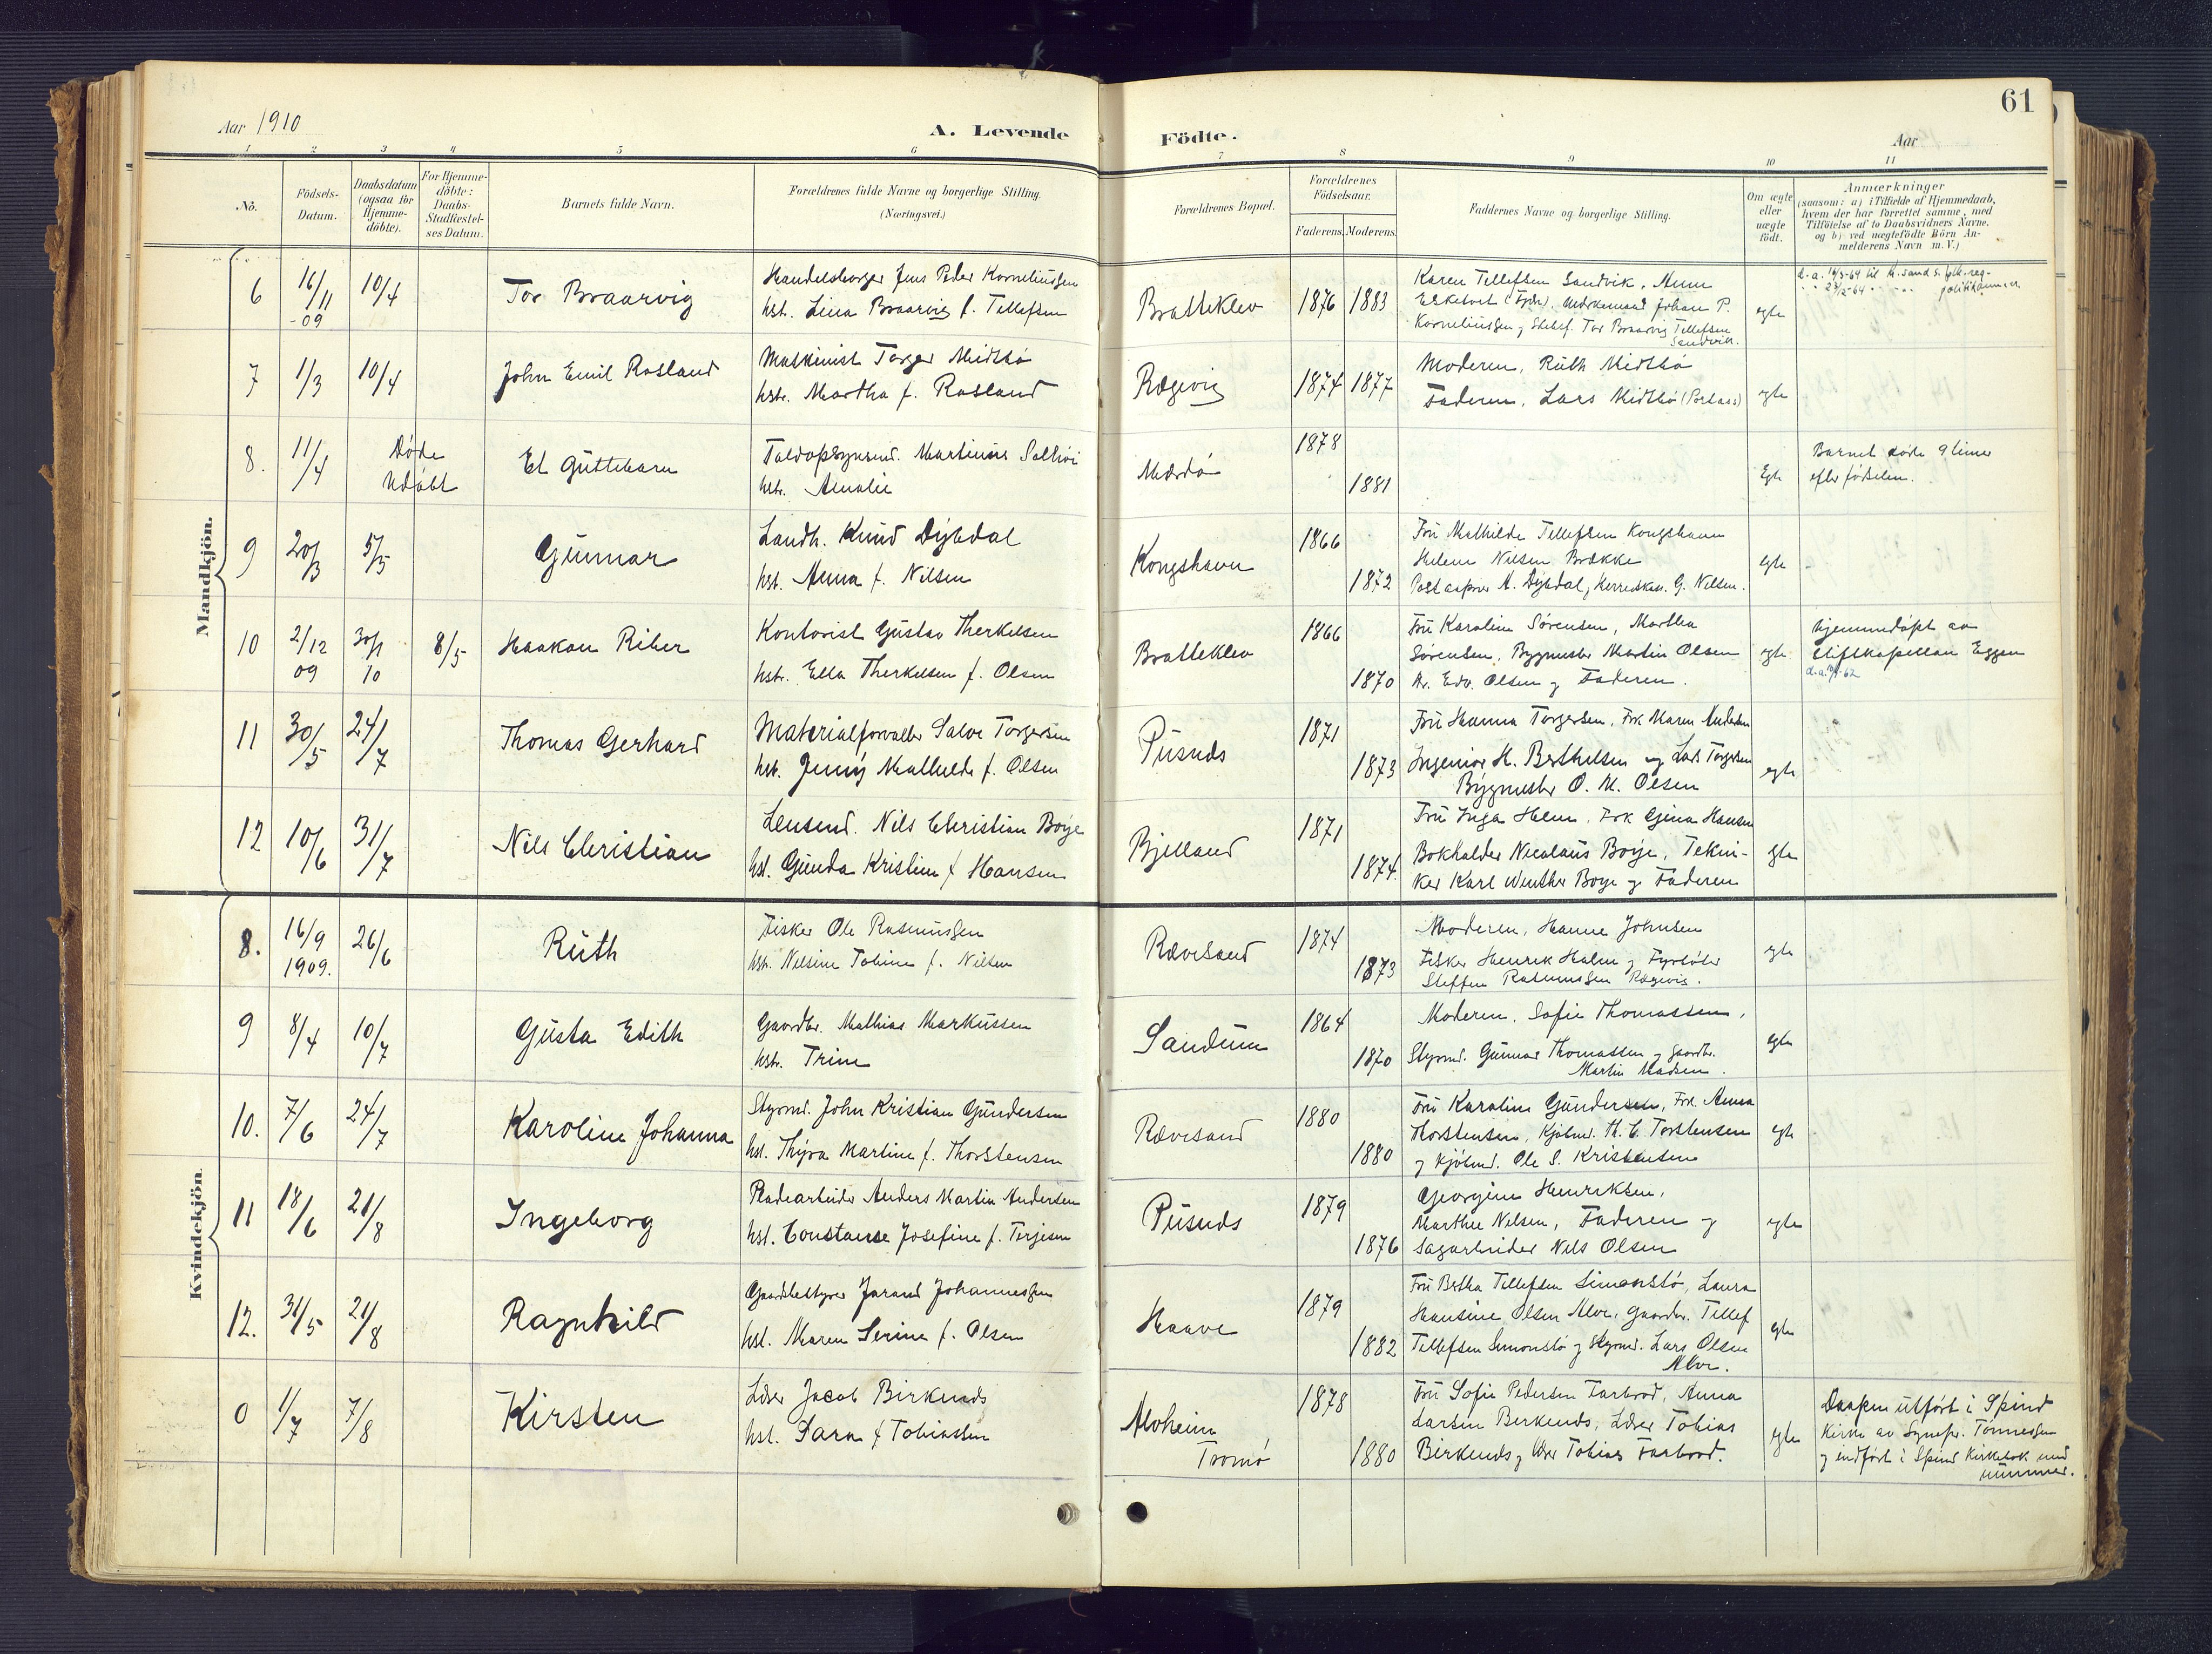 Aar 1910
A. Levende
Födte.
Aar
61
1 2 3 4 5 6 7 8 9 10 11
No.
Födsels-
Datum.
Daabsdatum
(ogsaa for
Hjemme-
döbte).
For Hjemme-
döbte:
Daabs-
Stadfæstel-
ses Datum.
Barnets fulde Navn.
Forældrenes fulde Navne og borgerlige Stilling.
(Næringsvei.)
Forældrenes Bopæl.
Forældrenes
Födselsaar.
Faderens.
Moderens.
Faddernes Navne og borgerlige Stilling.
Om ægte
eller
uægte
födt.
Anmærkninger
(saasom: a) i Tilfælde af Hjemmedaab,
hvem der har forrettet samme, med
Tilföielse af to Daabsvidners Navne,
og b) ved uægtefödte Börn An-
melderens Navn m. V.)
Mandkjön.
6 16/11 -09 10/4 Tor Braarvig
Handelsborger Jens Peder Korneliussen
hst. Lina Braarvig f. Tellefsen
Bratteklev 1876 1883
Karen Tellefsen Sandvik, Anna
Johan P.
Korneliussen og Tor Braarvig Tellefsen
Sandvik.
egte
7 1/3 10/4 John Emil Rosland
Maskinist Torger Midtbø
hstr. Martha f. Rosland
Rægevig 1874 1877
Moderen, Ruth Midtbø
Faderen, Lars Midtbø
egte
8. 11/4 Døde
Udøbt
Et Guttebarn
Toldopsynsmd. Martinius
hstr. Amalie
Mærdø 1878
1881
Egte
Barnet døde 9 timer
efter fødselen.
9 20/3 5/5 Gunnar
Landh. Knud Dybdal
hst. Anna f. Nilsen
Kongshavn 1866
1872
Fru Mathilde Tellefsen Kongshavn
Helene Nilsen Brække
A. Dybdal, G. Nilsen.
egte
10 2/12 09 30/1 10 8/5 Haakon Riber
Kontorist Gustav Therkelsen
hstr. Ella Therkelsen f. Olsen
Bratteklev 1866
1870
Fru Karoline Sørensen, Martha
Sørensen, Bygmester Martin Olsen
Hr. Edv. Olsen og Faderen.
egte
hjemmedøpt av
Stiftkapellan Eggen
11 30/5 24/7 Thomas Gerhard
Materialforvalter Salve Torgersen
hst. Jenny Mathilde f. Olsen
Pusnes 1871
1873
Fru Hanna Torgersen, Frk Maren Andersen
Ingeniør H. Berthelsen og Lars Torgersen
Bygmester O. M. Olsen
egte
12 10/6 31/7 Nils Christian
Lensmd. Nils Christian Boye
hst. Gunda Kristine f. Hansen
Bjelland 1871
1874.
Fru Inga Helm, Frk Gina Hansen
Bokholder Nicolaus Boye, Tekni-
ker Karl Winther Boye og Faderen
egte
Kvindekjön.
8. 16/9 1909. 26/6 Ruth
Fisker Ole Rasmussen
hstr. Nilsine Tobine f. Nilsen
Rævesand 1874
1873
Moderen, Hanne Johnsen
Fisker Henrik Holm og Fyrbøter
Steffen Rasmussen Rægevig.
egte
9 8/4 10/7 Gusta Edith
Gaardbr. Mathias Markussen
hstr. Trine
Sandum 1864
1870
Moderen, Sofie Thomassen,
Styrmd. Gunnar Thomassen og Gaardbr.
Martin Madsen.
egte
10. 7/6 24/7 Karoline Johanna
Styrmd. John Kristian Gundersen
hst. Thyra Martine f. Thorstensen
Rævesand 1880
1880
Fru Karoline Gundersen, Frk. Anna
Thorstensen, Kjøbmd. H. C. Torstensen
og Kjøbmd. Ole S. Kristensen
egte
11 18/6 21/8 Ingeborg
Pladearbeider Anders Martin Andersen
hst. Constanse Josefine f. Terjesen
Pusnes 1879
1876
Georgine Henriksen,
Marthe Nilsen, Faderen og
Sagarbeider Nils Olsen
egte
12. 31/5 21/8 Ragnhild
Gaardbestyrer Jorand Johannessen
hst. Maren Serine f. Olsen
Haave 1879
1882
Fru Bertha Tellefsen Simonstø, Laura
Hansine Olsen Alve, Gaardbr. Tellef
Tellefsen Simonstø og Styrmd. Lars Olsen
Alve.
egte
0 1/7 7/8 Kirsten
Lærer Jacob Birkenes
hst. Sara f Tobiassen
Alvheim
Tromø
1878
1880
Fru Sofie Pedersen Farbrod, Anna
Larsen Birkenes, Lærer Tobias
Birkenes og Tobias Farbrod.
egte
Daapen utført i Spind
Kirke av Sognepr. Tønnessen
og indført i Spind Kirkebok med
nummer.